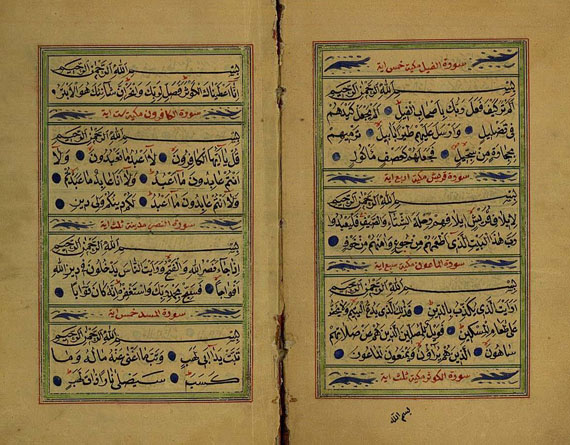 سورة الفيل مكية خمس اية
بسم الله الرحمن الرحيم
الم تر كيف فعل ربك باصحاب الفيل الم يجعل كيدهم
في تضليل وارسل عليهم طيرا ابابيل ترميهم
بحجارة من سجيل فجعلهم كعصف ماكول
سورة قريش مكية اربع اية
بسم الله الرحمن الرحيم
لايلاف قريش ايلافهم رحلة الشتاء والصيف فليعبدوا
رب هذا البيت الذي اطعمهم من جوع وامنهم من خوف
سورة الماعون مكية سبع اية
بسم الله الرحمن الرحيم
ارايت الذي يكذب بالدين فذلك الذي يدع اليتيم ولا يحض
على طعام المسكين فويل للمصلين الذين هم عن صلاتهم
ساهون الذين هم يراؤن ويمنعون الماعون
سورة الكوثر مكية ثلث اية
بسم الله
بسم الله الرحمن الرحيم
انا اعطيناك الكوثر فصل لربك وانحر ان شانئك هو الابتر
سورة الكافرون مكية ست اية
بسم الله الرحمن الرحيم
قل يا ايها الكافرون لا اعبد ما تعبدون ولا
انتم عابدون ما اعبد ولا انا عابد ما عبدتم
ولا انتم عابدون ما اعبد لكم دينكم ولي دين
سورة النصر مدنية ثلث اية
بسم الله الرحمن الرحيم
اذا جاء نصر الله والفتح ورايت الناس يدخلون في دين الله
افواجا فسبح بحمد ربك واستغفره انه كان توابا
سورة المسد خمس اية
بسم الله الرحمن الرحيم
تبت يدا ابي لهب وتب ما اغنى عنه ماله وما
كسب سيصلى نارا ذات لهب